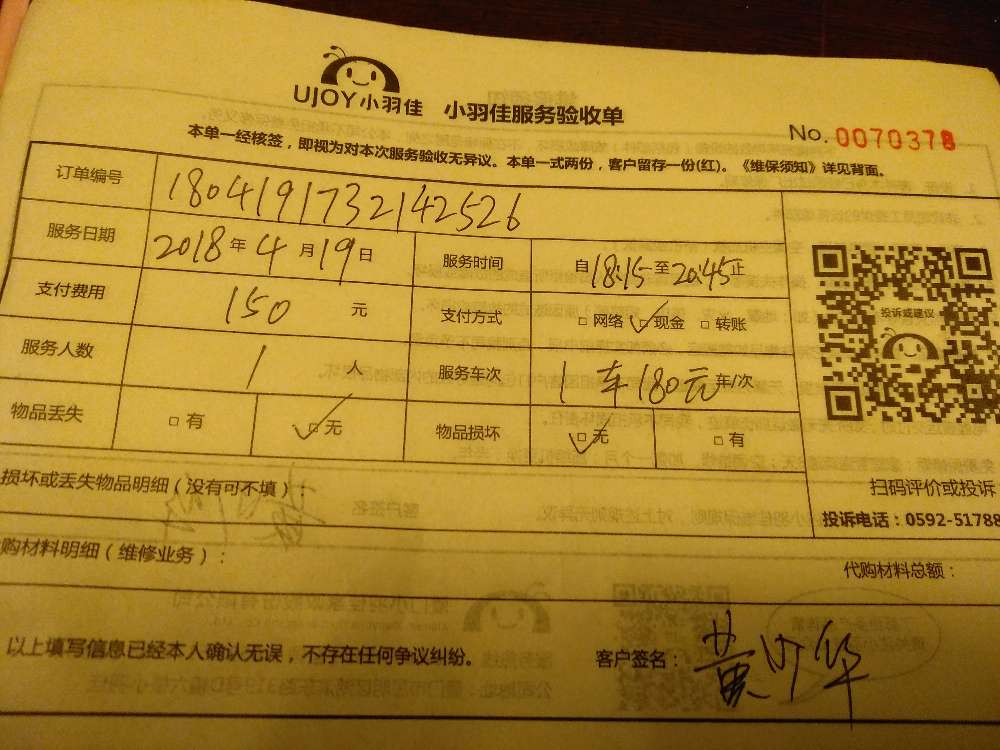 UJOY小羽佳 小羽佳服务验收单
No. 0070378
本单一经核签，即视为对本次服务验收无异议。本单一式两份，客户留存一份(红)。《维保须知》详见背面。
订单编号 1804191732142526
服务日期 2018年4月19日 服务时间 自18:15至20:45止
支付费用 150 元 支付方式 □网络 □现金 □转账
投诉或建议
服务人数 1 人 服务车次 1车180元 车/次
物品丢失 □有 □无 物品损坏 □无 □有
损坏或丢失物品明细（没有可不填）：
扫码评价或投诉
投诉电话：0592-51788
购材料明细（维修业务）：
代购材料总额：
以上填写信息已经本人确认无误，不存在任何争议纠纷。 客户签名：黄 华